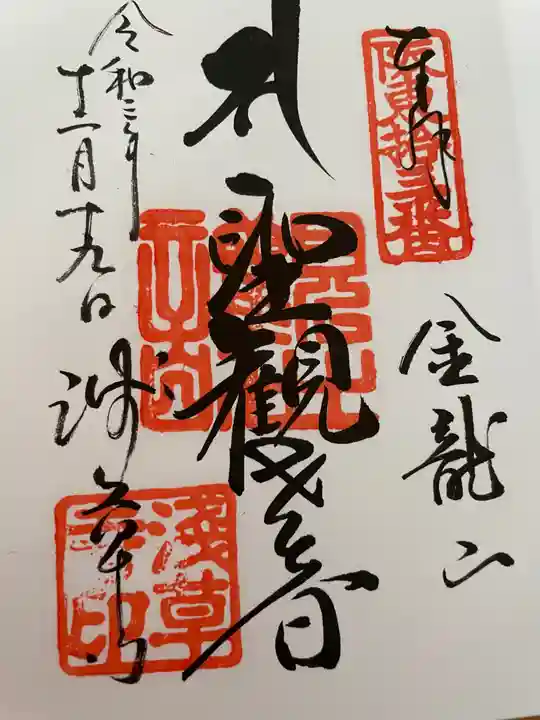 奉拝
坂東拾三番
金龍山
聖観世音
令和三年
十一月十九日
浅草寺
淺草寺印